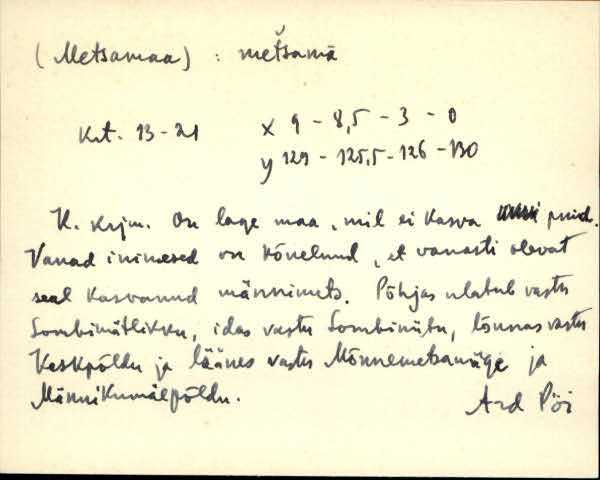 (Metsamaa) : metšamā
Krt. 13-21 x 9 - 8,5 - 3 - 0
y 129 - 125,5 - 126 - 130
K. krjm. On lage maa, mil ei kasva puid.
Vanad inimesed on kõnelnud, et vanasti olevat
seal kasvanud männimets. Põhjas ulatub vastu
Sombimätlikku, idas vastu Sombinütu, lõunas vastu
Keskpõldu ja läänes vastu Mõnnemetsamäge ja
Männikumäepõldu.
Ard Pöi